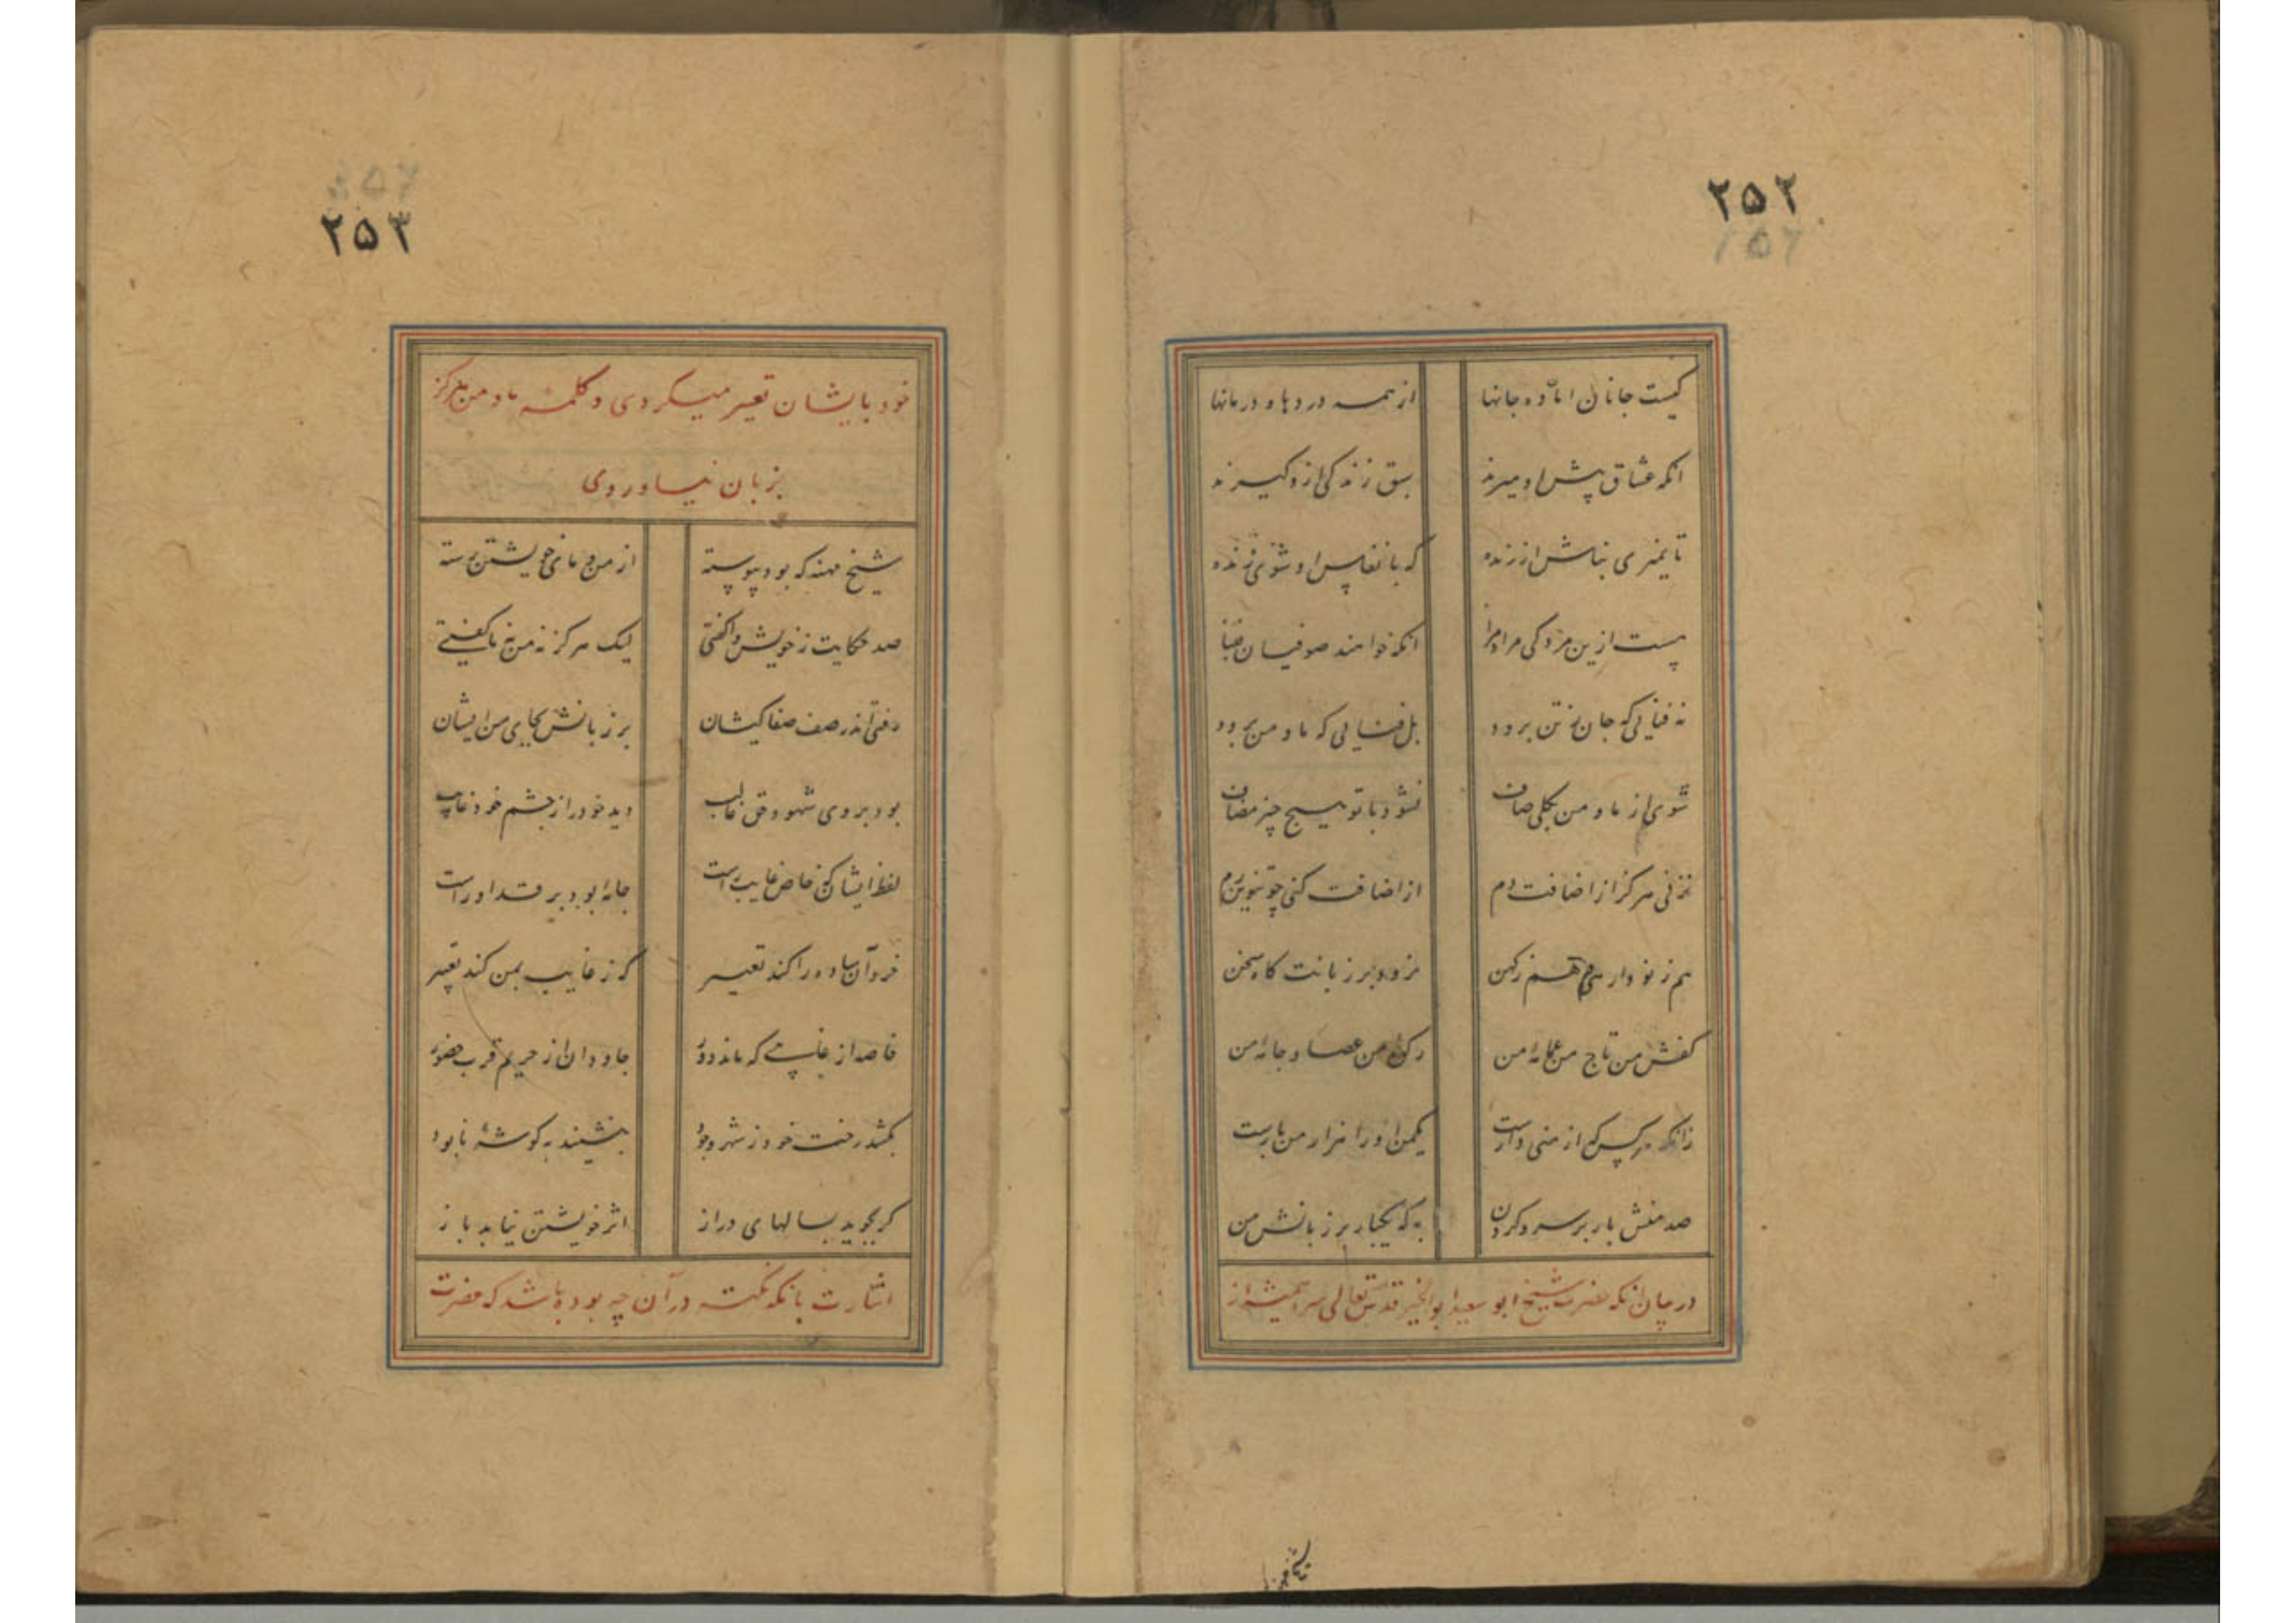 ۲۵۲
کیست جانان اماّده جانها از همه دردها و درمانها
انکه عشاق پیش او میرند سبق زندکی ازو کیرند
تا نمیری نباشی ارزنده که بانفاس او شوی زنده
هست ازین مردکی مراد مرا انکه خوانند صوفیان فنا
نه فنایی که جان ز تن برود بل فنایی که ما و من برود
شوی از ما و من بکلی صاف نشود با تو هیچ چیز مضاف
نزنی هرکز از اضافت دم از اضافت کنی چو تنوین رم
هم ز نو وارهی و هم ز کهن نرود بر زبانت کاه سخن
کفش من تاج من عمامهٔ من رکوهٔ من عصا و جامهٔ من
زانکه هر کس که از منی وارست یکمن او را هزار من بارست
صد منش بار بر سر و کردن به که یکبار بر زبانش من
در بیان انکه حضرت شیخ ابو سعید ابو الخیر قدس الله تعالی سره همیشه از
شیخ مهنه
۲۵۳
خود بایشان تعبیر میکردی و کلمه ما و من هرکز
بزبان نیاوردی
شیخ مهنه که بود پیوسته از من و مای خویشتن رسته
صد حکایت ز خویش واکفتی لیک هرکز نه من نه ما کفتی
رفتی اندر صف صفا کیشان بر زبانش بجای من ایشان
بود بر وی شهود حق غالب دید خود را ز چشم خود غایب
لفظ ایشان که خاص غایب راست جامهٔ بود بر قد او راست
خرد آن ساده را کند تعییر که ز غایب بمن کند تعبیر
خاصه از غایبی که ماند دور جاودان از حریم قرب حضور
بکشد رخت خود ز شهر وجود بنشیند به کوشهٔ نابود
کر بجوید بسالهای دراز اثر خویشتن نیابد باز
اشارت بانکه نکته در آن چه بوده باشد که حضرت